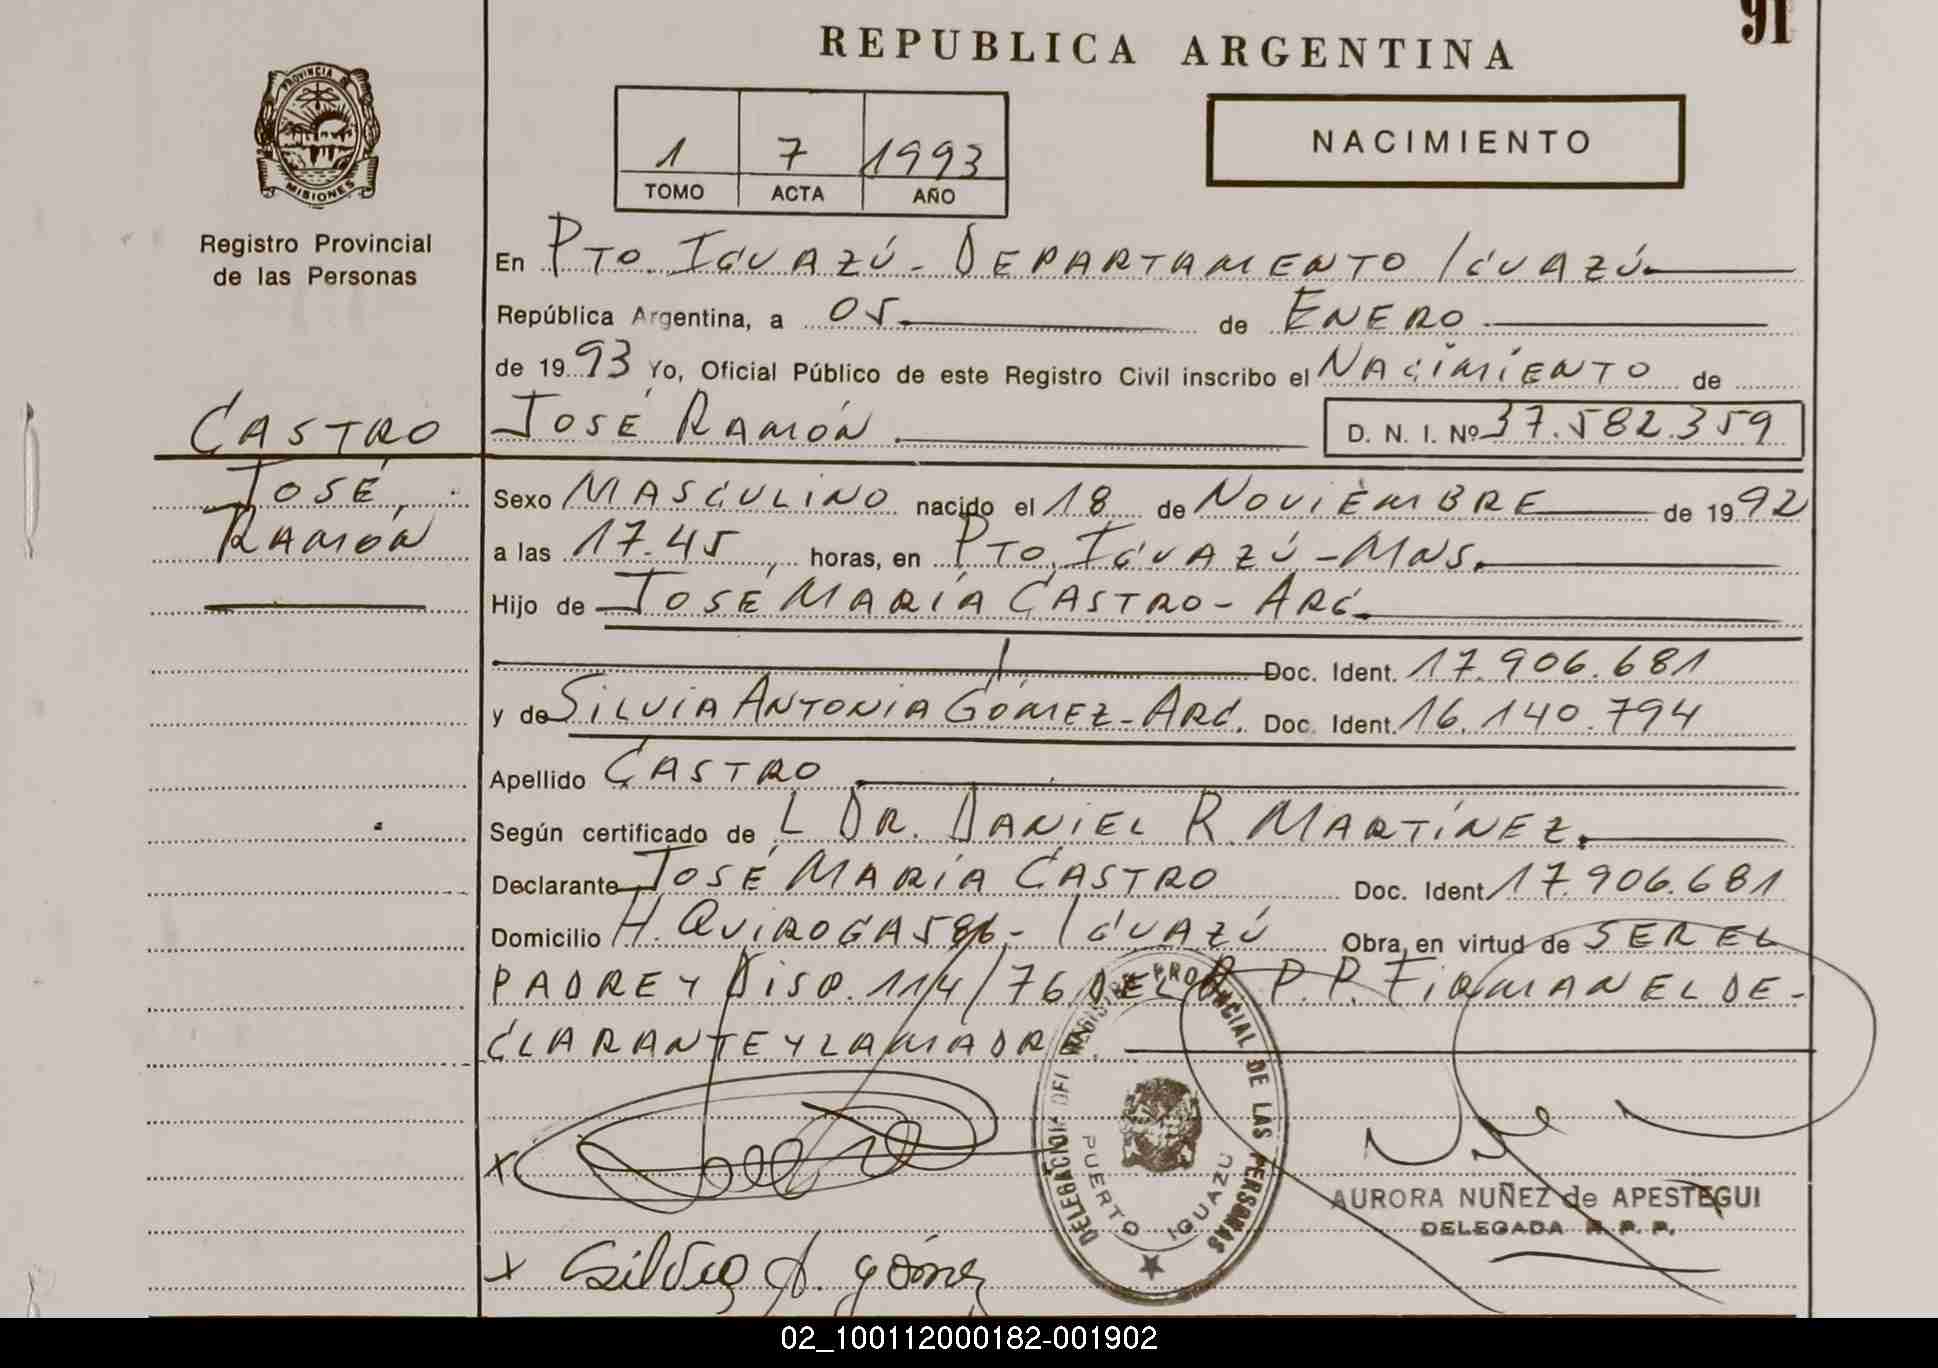 91
REPUBLICA ARGENTINA
PROVINCIA DE
MISIONES
Registro Provincial
de las Personas
1 7 1993
TOMO ACTA AÑO
NACIMIENTO
En PTO. IGUAZÚ - DEPARTAMENTO IGUAZÚ
República Argentina, a 05 de ENERO
de 1993 Yo, Oficial Público de este Registro Civil inscribo el NACIMIENTO de
JOSÉ RAMÓN. D. N. I. Nº 37.582.359
CASTRO
JOSÉ
RAMÓN
Sexo MASCULINO nacido el 18 de NOVIEMBRE de 1992
a las 17.45, horas, en PTO. IGUAZÚ - MNS.
Hijo de JOSÉ MARÍA CASTRO - ARG.
Doc. Ident. 17.906.681
y de SILVIA ANTONIA GÓMEZ - ARG. Doc. Ident. 16.140.794
Apellido CASTRO
Según certificado de L DR. DANIEL R. MARTÍNEZ.
Declarante JOSÉ MARÍA CASTRO Doc. Ident. 17.906.681
Domicilio H. QUIROGA 586 - IGUAZÚ Obra, en virtud de SER EL
PADRE Y DISP. 114/76 DEL R. P. P. FIRMAN EL DE-
CLARANTE Y LA MADRE.
DELEGACION DEL REGISTRO PROVINCIAL DE LAS PERSONAS
PUERTO IGUAZU
AURORA NUÑEZ de APESTEGUI
DELEGADA R. P. P.
x
x Silvia A. gómez
02_100112000182-001902